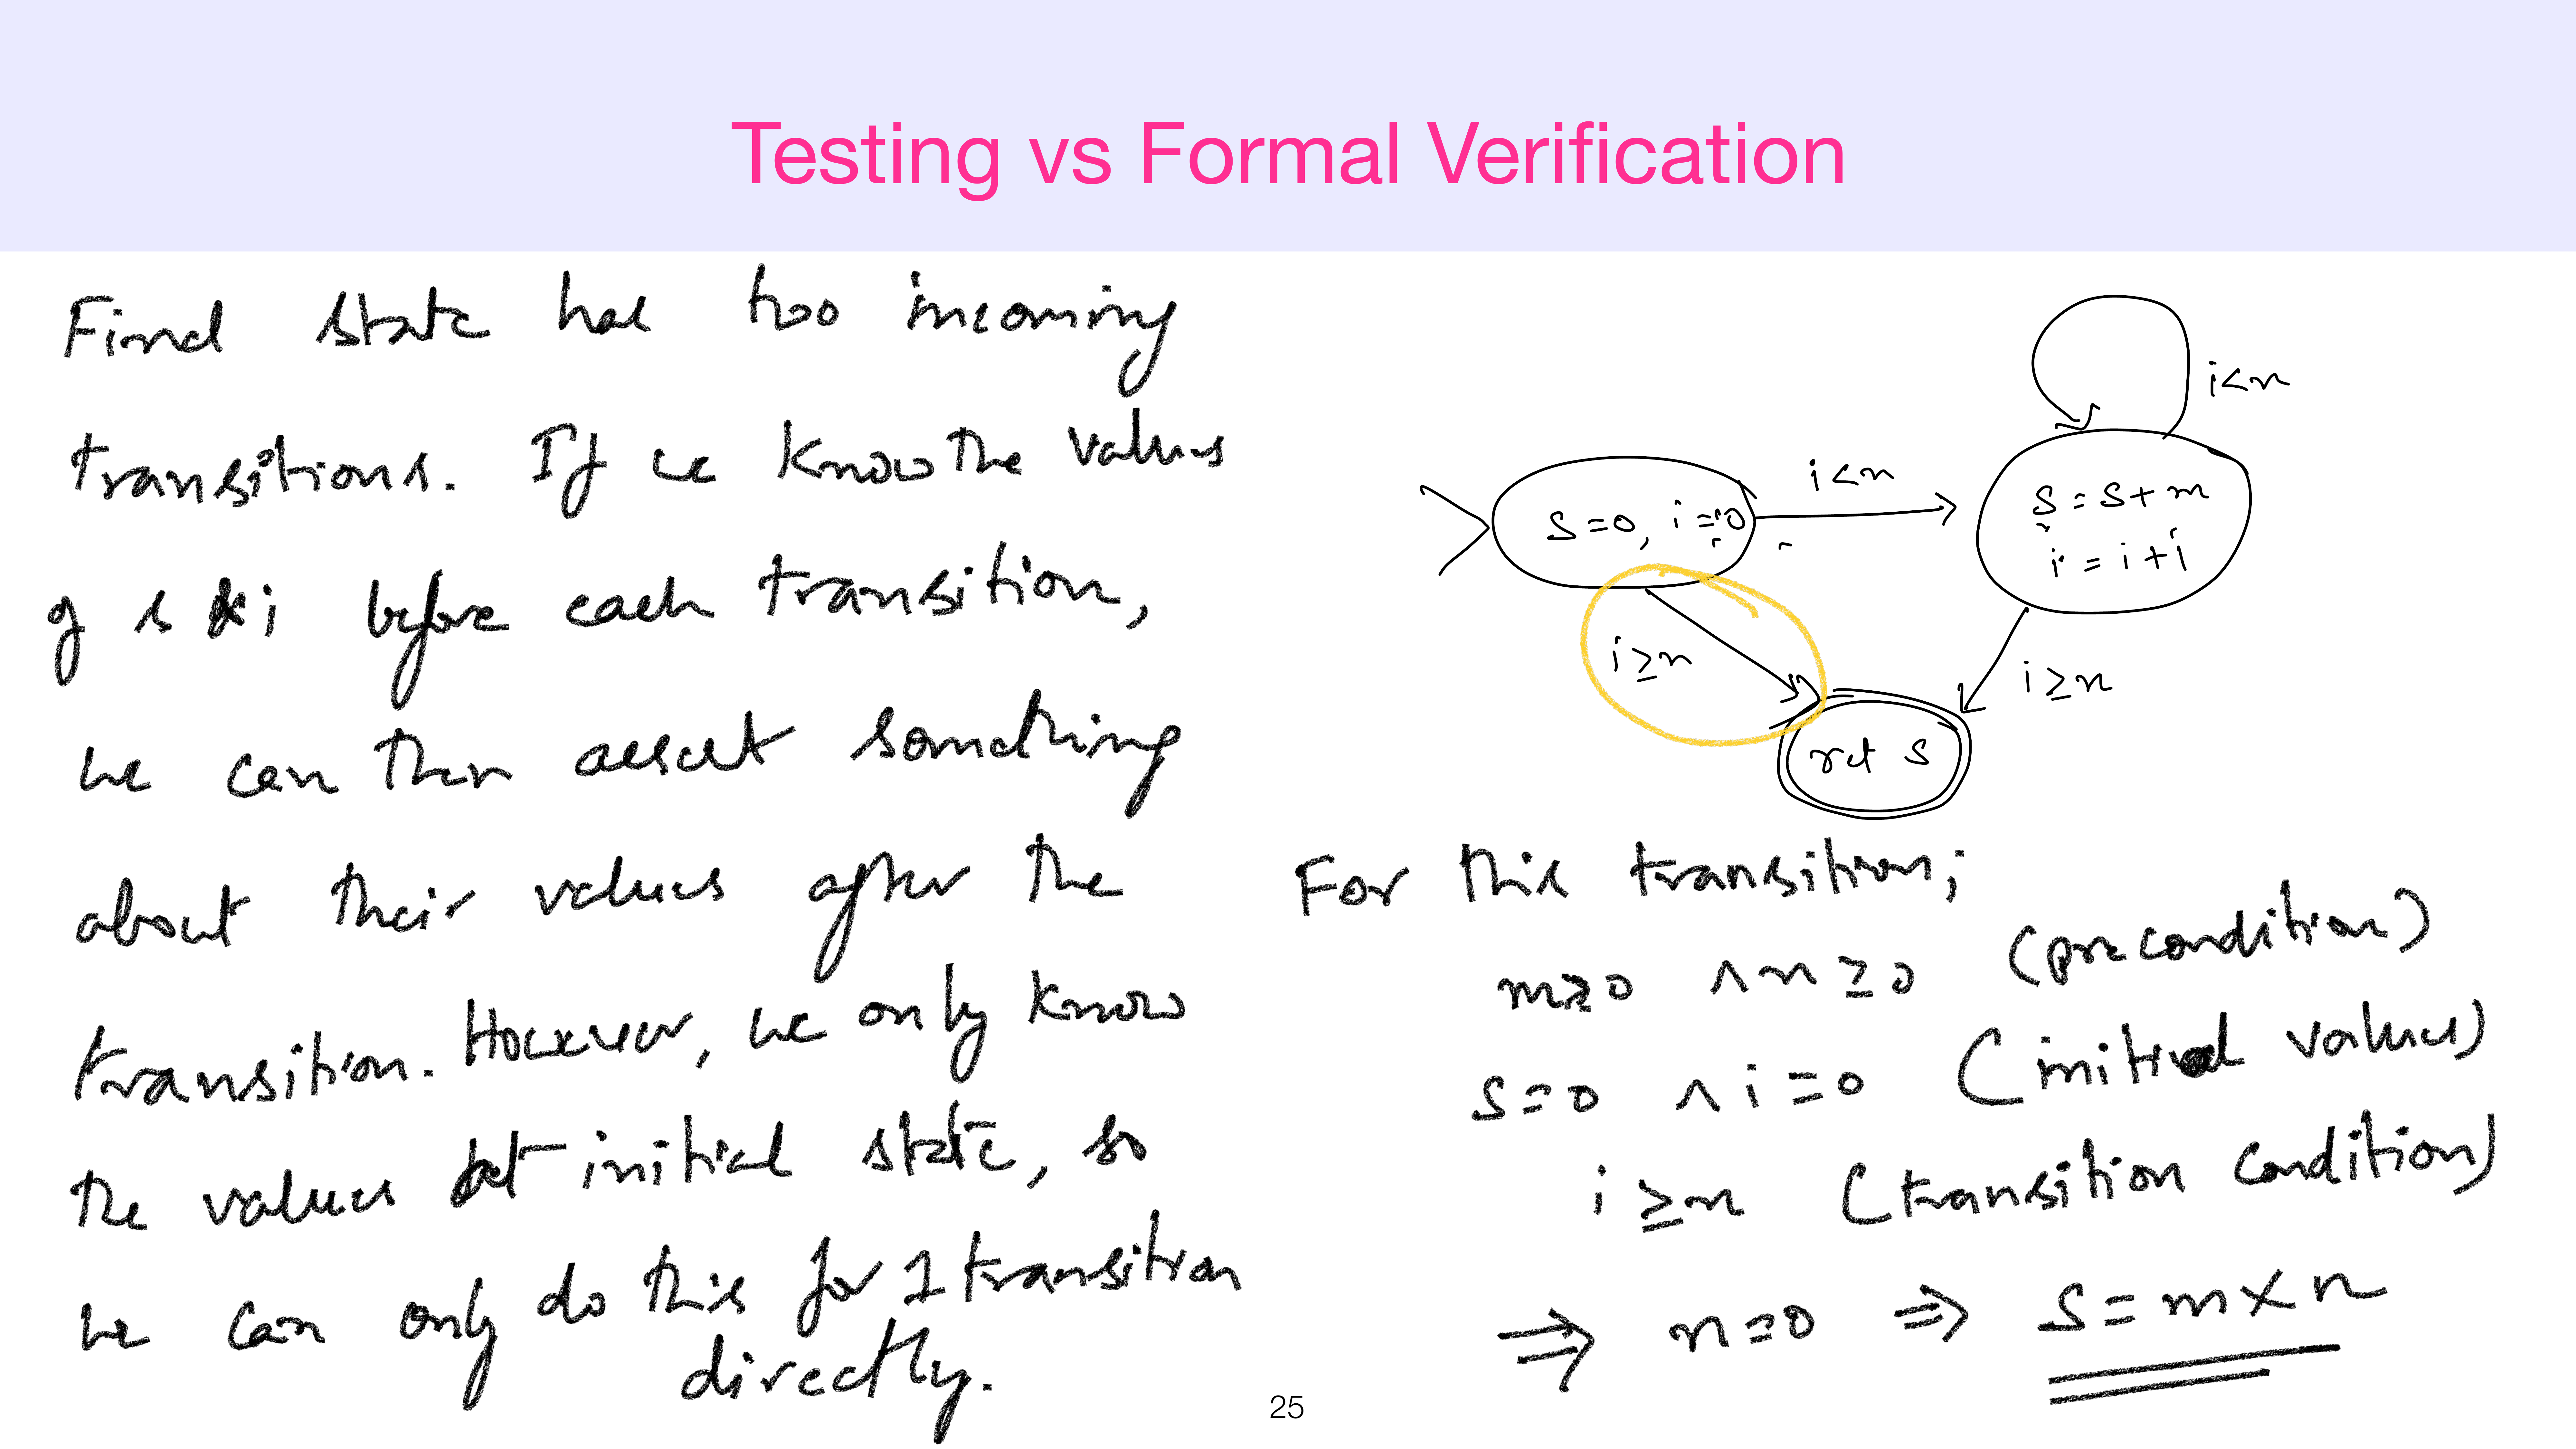 Testing vs Formal Verification
Final state has two incoming
transitions. If we know the values
of s & i before each transition,
we can then assert something
about their values after the
transition. However, we only know
the values at initial state, so
we can only do this for 1 transition
directly.
i<n
s=0, i=0
i<n
s=s+m
i=i+1
i≥n
i≥n
ret s
For this transition;
m≥0 ∧ n≥0 (precondition)
s=0 ∧ i=0 (initial values)
i≥n (transition condition)
⇒ n=0 ⇒ s=m×n
25